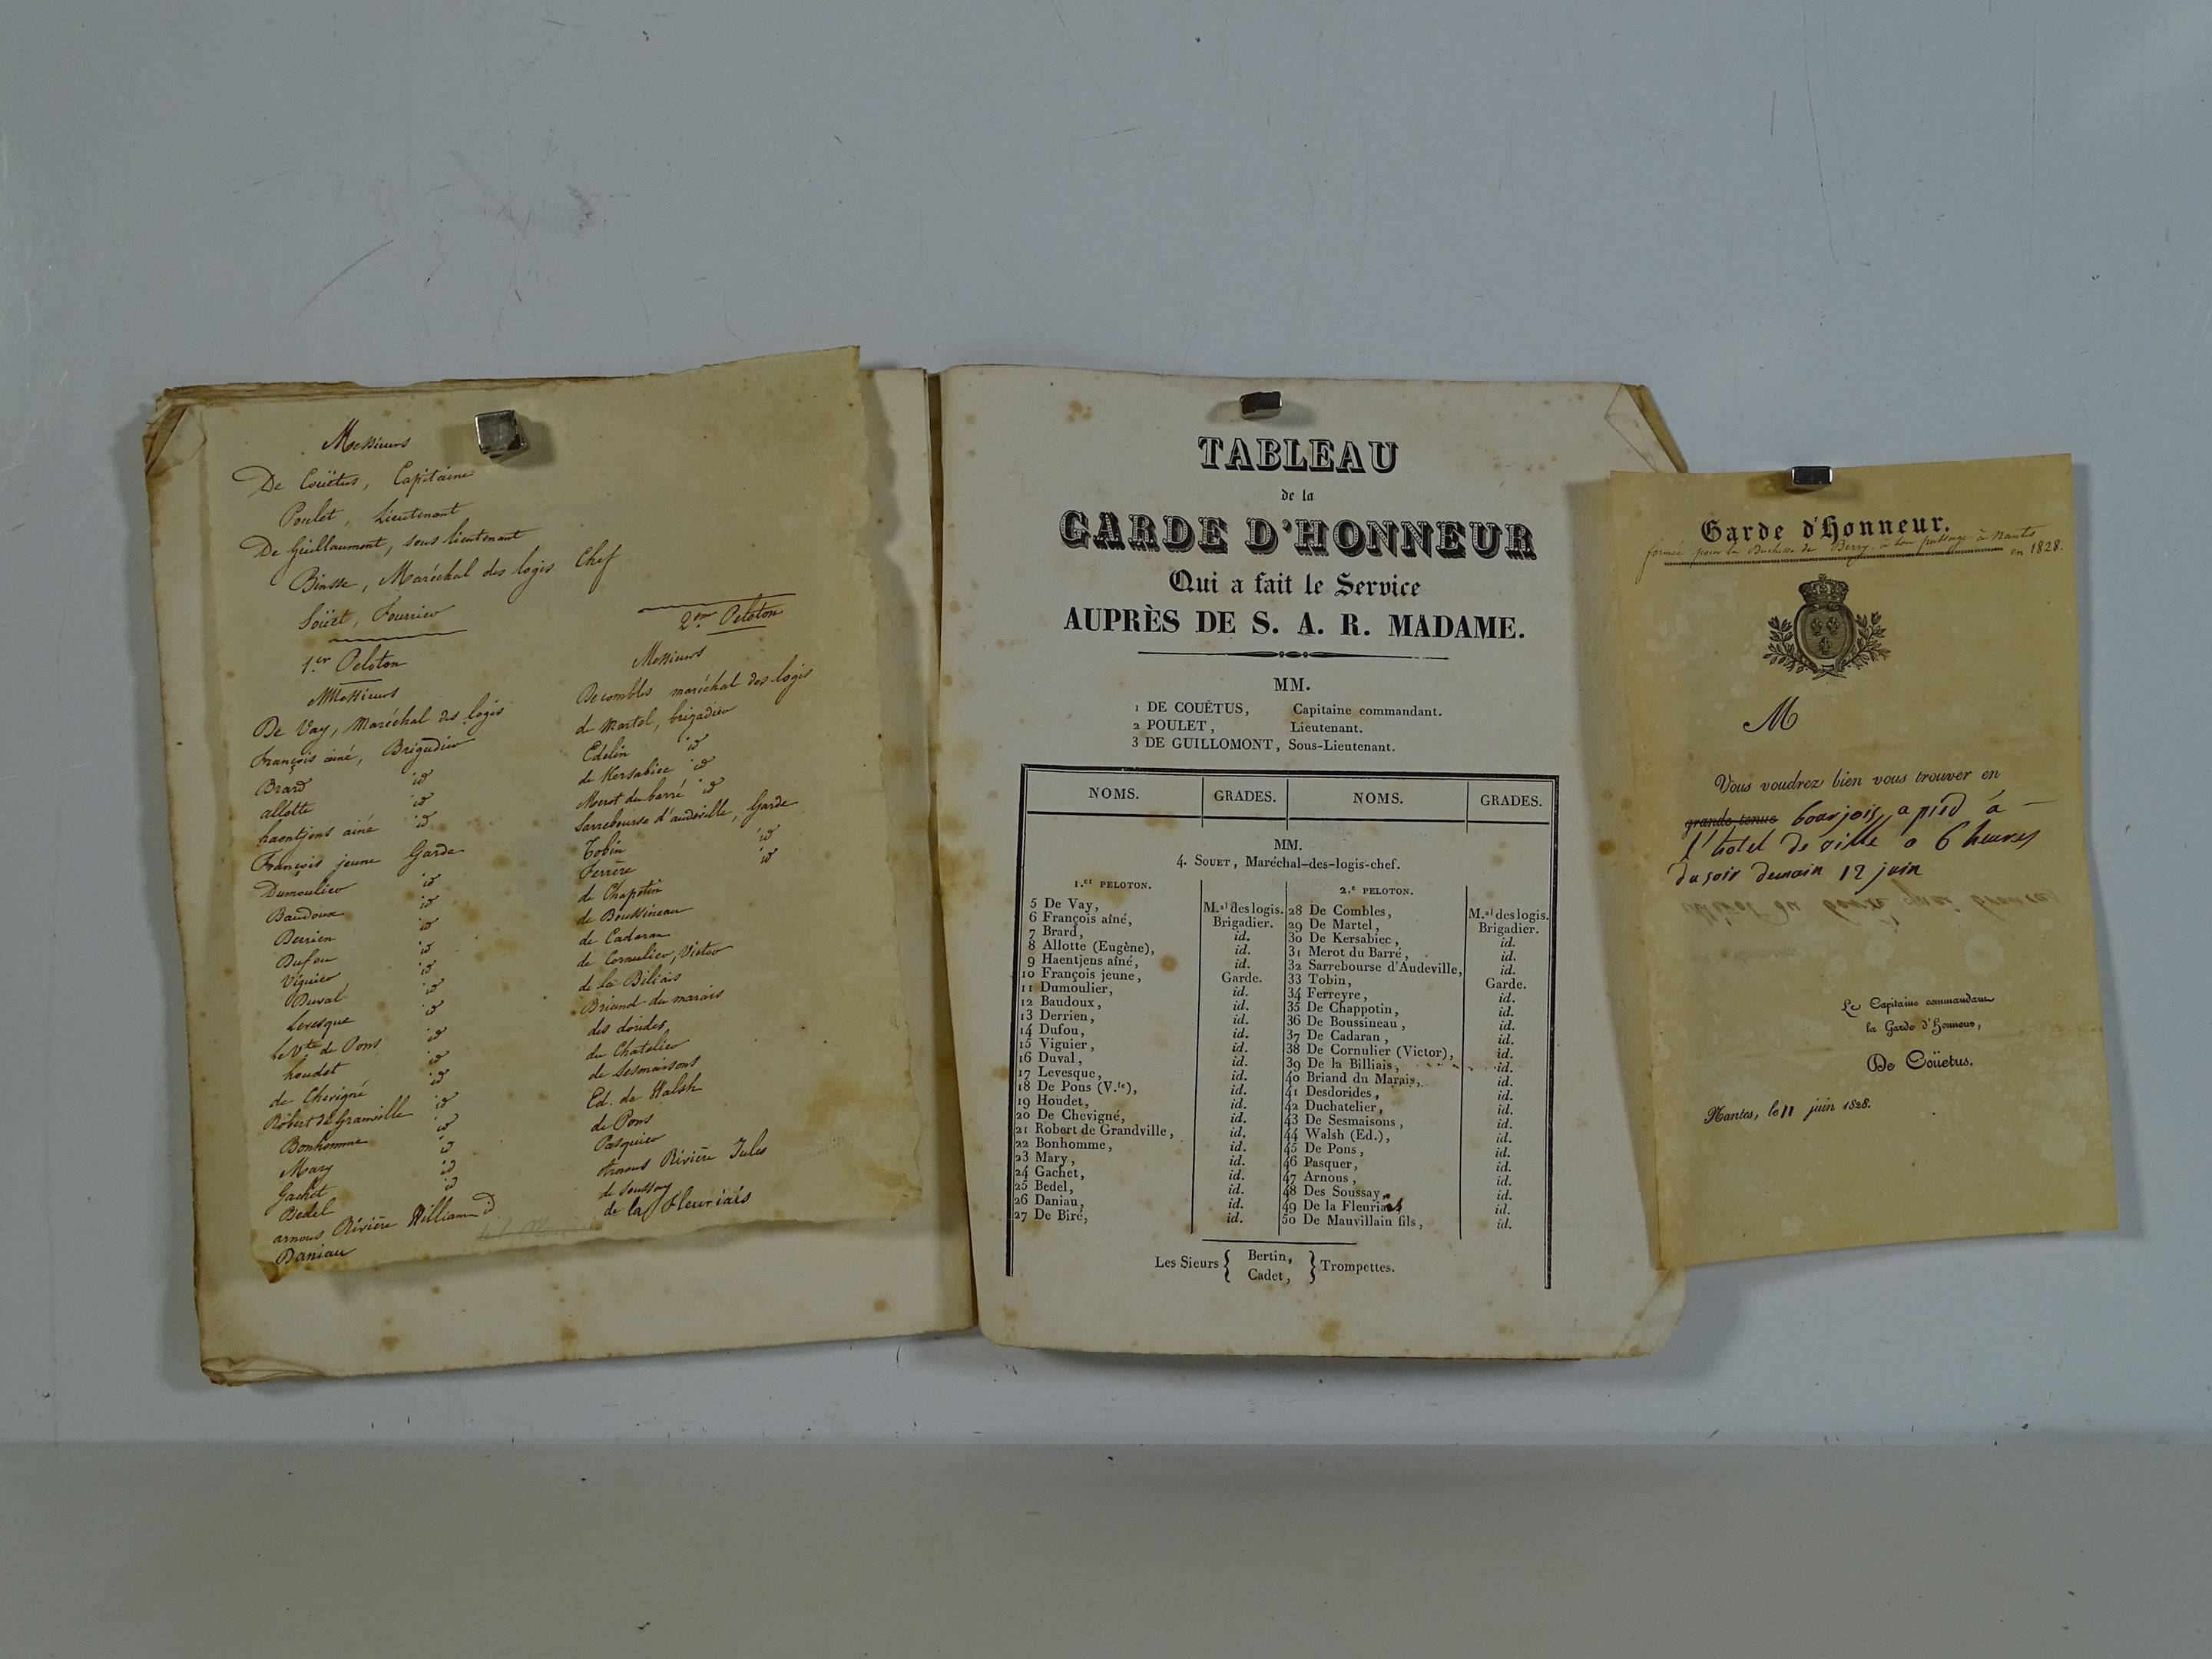 Messieurs
De Coüëtus, Capitaine
Poulet, Lieutenant
De Guillaumont, sous lieutenant
Binsse, Maréchal des logis Chef
Soüet, Fourrier
1.er Peloton
Messieurs
De Vay, Maréchal des logis
François ainé, Brigadier
Brard id
allotte id
haentjens ainé id
François jeune Garde
Dumoulier id
Baudoux id
Derrien id
Dufou id
Viguier id
Duval id
Levesque id
le Vte de Pons id
houdet id
de Chevigné id
Robert de Granville id
Bonhomme id
Mary id
Gachet id
Bedel id
arnous Rivière William d
Daniau
2em Peloton
Messieurs
Decombles maréchal des logis
de Martel, brigadier
Edelin id
de Kersabiec id
Merot du barré id
Sarrebourse d'audeville, Garde
Tobin id
Ferrère id
de Chapotin
de Boussineau
de Cadaran
de Cornulier, Victor
de la Biliais
Briand du marais
des dorides
du Chatelier
de Sesmaisons
Ed. de Walsh
de Pons
Pasquier
Arnous Rivière Jules
de Soussay
de la fleuriais
TABLEAU
de la
GARDE D'HONNEUR
Qui a fait le Service
AUPRÈS DE S. A. R. MADAME.
MM.
1 DE COUËTUS, Capitaine commandant.
2 POULET, Lieutenant.
3 DE GUILLOMONT, Sous-Lieutenant.
NOMS. GRADES. NOMS. GRADES.
MM.
4. SOUET, Maréchal-des-logis-chef.
1.er PELOTON.
5 De Vay, M.al des logis.
6 François aîné, Brigadier.
7 Brard, id.
8 Allotte (Eugène), id.
9 Haentjens aîné, id.
10 François jeune, Garde.
11 Dumoulier, id.
12 Baudoux, id.
13 Derrien, id.
14 Dufou, id.
15 Viguier, id.
16 Duval, id.
17 Levesque, id.
18 De Pons (V.te), id.
19 Houdet, id.
20 De Chevigné, id.
21 Robert de Grandville, id.
22 Bonhomme, id.
23 Mary, id.
24 Gachet, id.
25 Bedel, id.
26 Daniau, id.
27 De Biré, id.
2.e PELOTON.
28 De Combles, M.al des logis.
29 De Martel, Brigadier.
30 De Kersabiec, id.
31 Merot du Barré, id.
32 Sarrebourse d'Audeville, id.
33 Tobin, Garde.
34 Ferreyre, id.
35 De Chappotin, id.
36 De Boussineau, id.
37 De Cadaran, id.
38 De Cornulier (Victor), id.
39 De la Billiais, id.
40 Briand du Marais, id.
41 Desdorides, id.
42 Duchatelier, id.
43 De Sesmaisons, id.
44 Walsh (Ed.), id.
45 De Pons, id.
46 Pasquer, id.
47 Arnous, id.
48 Des Soussay, id.
49 De la Fleuriais id.
50 De Mauvillain fils, id.
Les Sieurs { Bertin, Cadet, } Trompettes.
Garde d'Honneur.
formée pour la Duchesse de Berry, à son passage à Nantes
en 1828.
M
Vous voudrez bien vous trouver en
grande tenue bourjois, a pied à
l'hotel de ville a 6 heures
du soir demain 12 juin
Le Capitaine commandant
la Garde d'Honneur,
De Coüetus.
Nantes, le 11 juin 1828.